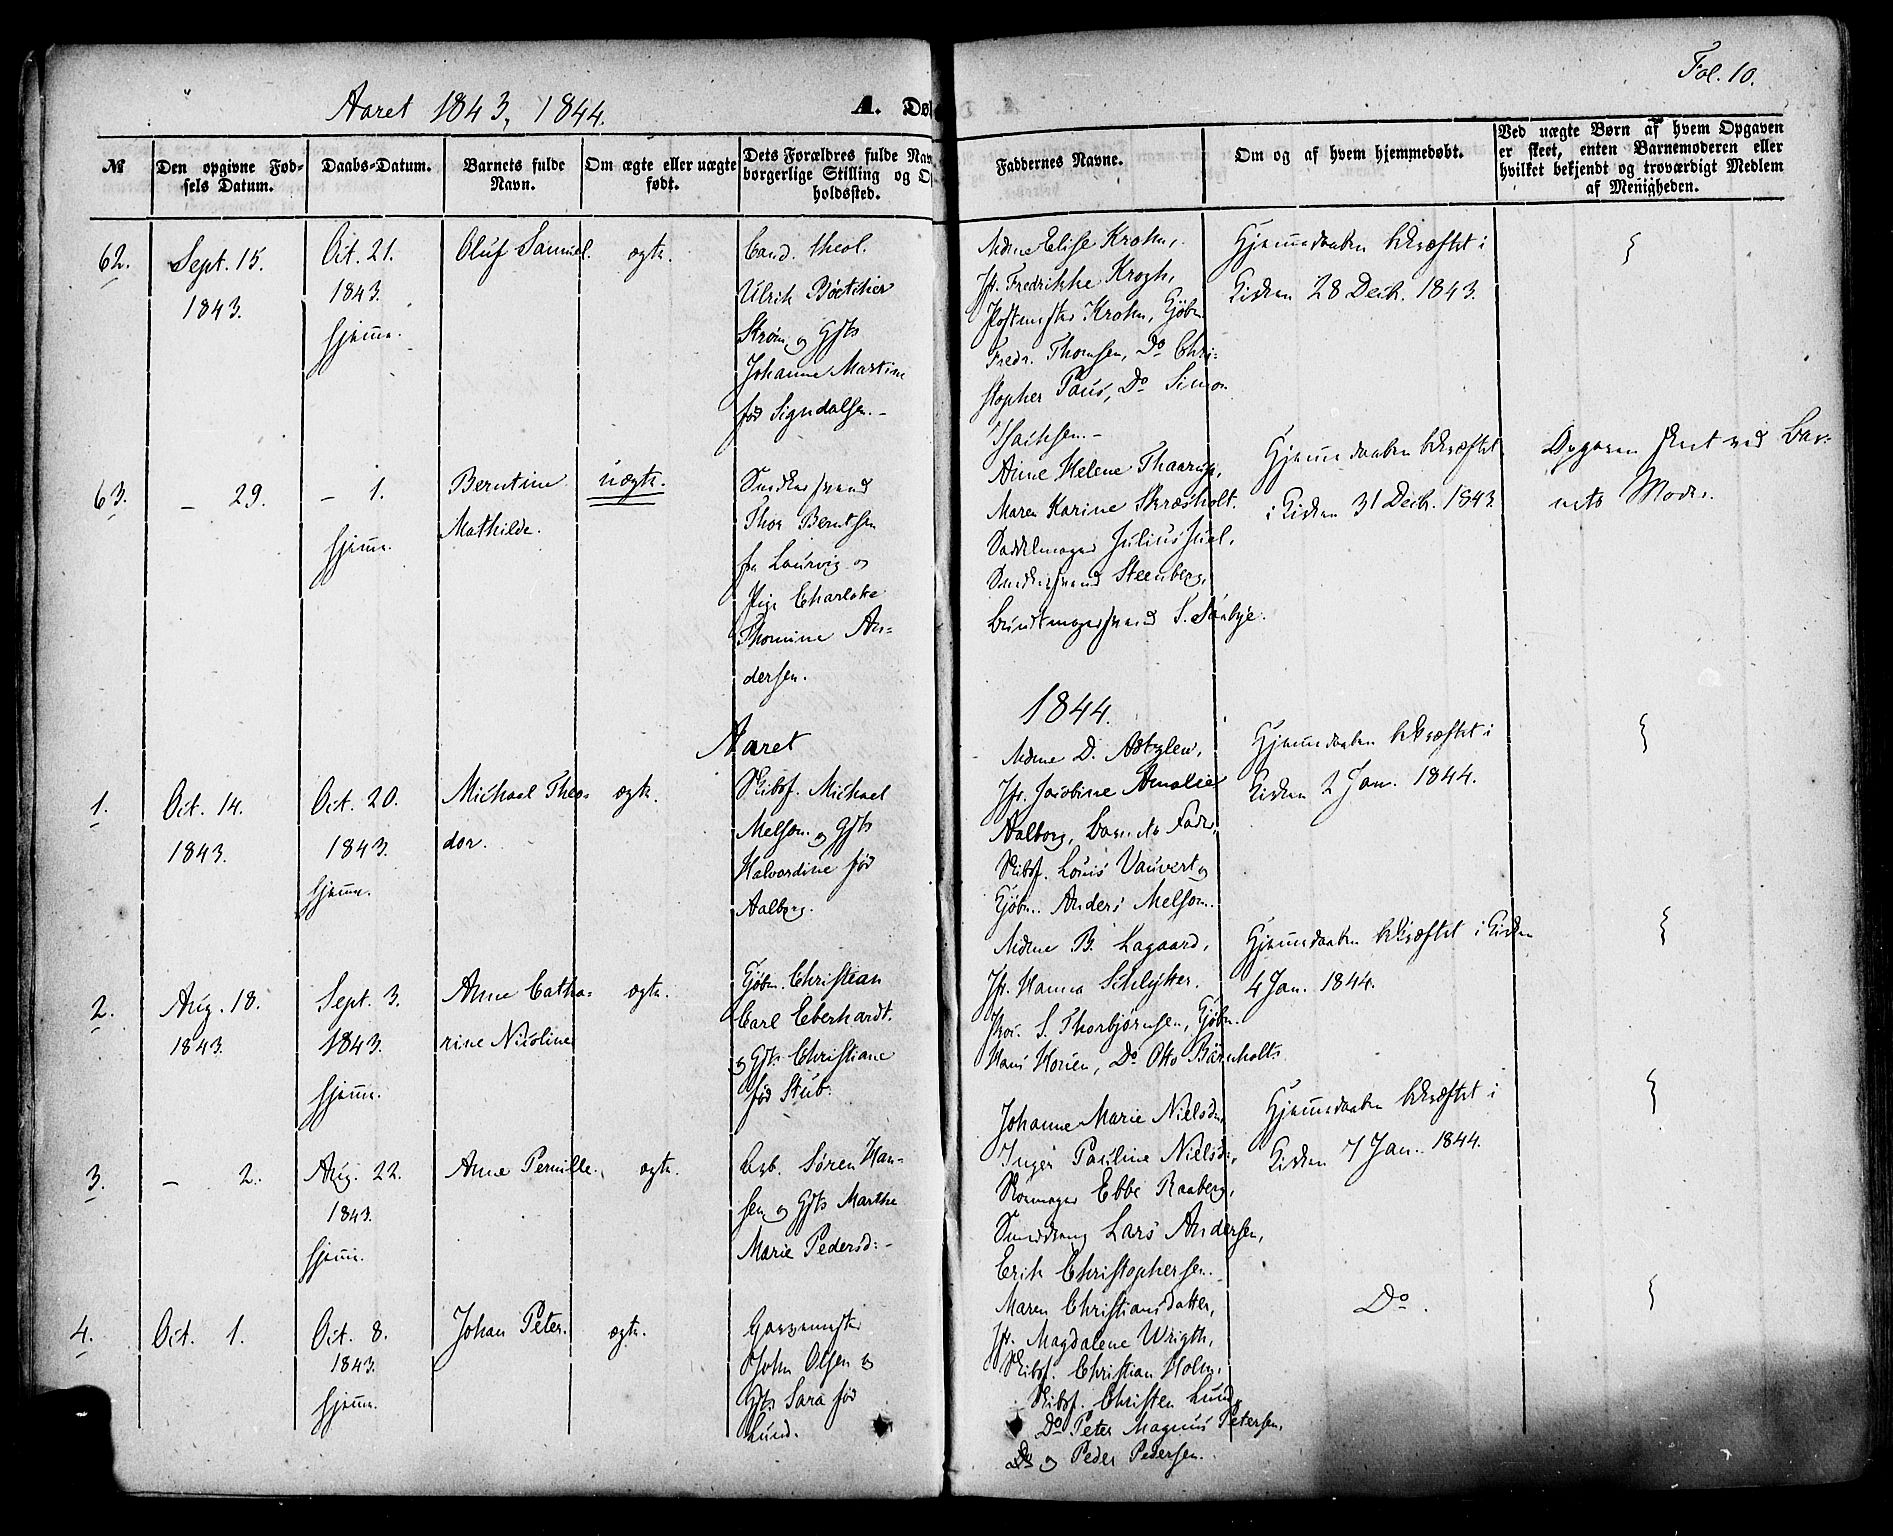 Fol. 10.
Aaret 1843, 1844.
A. Dø
№
Den opgivne Fød-
sels Datum.
Daabs-Datum.
Barnets fulde
Navn.
Om ægte eller uægte
født.
Dets Forældres fulde Nav
borgerlige Stilling og O
holdssted.
Faddernes Navne.
Om og af hvem hjemmedøbt.
Ved uægte Børn af hvem Opgaven
er skeet, enten Barnemoderen eller
hvilket bekjendt og troværdigt Medlem
af Menigheden.
62.
Sept. 15.
1843.
Oct. 21.
1843.
hjemme.
Oluf Samuel.
ægte.
Cand. theol.
Ulrik Bötticher
Strøm, og Gfts
Johanne Martine
fød Signdalsen.-
Mdme Elise Krohn,
Jfr. Fredrikke Krogh,
Postmester Krohn, Kjøbm.
Fredr. Thomsen, Do Chri-
stopher Paus, Do Simon
Isachsen.-
Hjemmedaaben bekræftet i
Kirken 28 Decb. 1843.
63.
- 29.
- 1.
hjemme.
Berntine
Mathilde.
uægte.
Snedkersvend
Thor Berntsen
fra Laurvig og
Pige Charlotte
Thomine An-
dersen.
Anne Helene Thaarup,
Maren Karine Skræsholt.
Saddelmager Julius Juel,
Snedkersvend Steenberg,
Bundtmagersvend S. Sunbye.
Hjemmedaaben bekræftet
i Kirken 31 Decb. 1843.
Opgaven skeet ved Bar-
nets Moder.
Aaret
1844.
1.
Oct. 14.
1843.
Oct. 20.
1843.
hjemme.
Michael Theo-
dor.
ægte.
Skibsf. Michael
Melsom og Gfts
Halvordine fød
Aalborg.
Mdme D. Adzlew,
Jfr. Jacobine Amalie
Aalborg, Barnets Fader,
Skibsf. Louis Vauvert og
Kjøbm. Anders Melsom.
Hjemmedaaben bekræftet i
Kirken 2 Jan. 1844.
2.
Aug. 18.
1843.
Sept. 3.
1843.
hjemme.
Anne Catha-
rine Nicoline
ægte.
Kjøbm. Christian
Carl Eberhardt.
og Gfts Christiane
fød Stub.
Mdme B. Lagaard,
Jfr. Hanna Schlytter.
Proc. S. Thorbjørnsen, Kjøbm.
Hans Houen, Do Otto Bärnholts
Hjemmedaaben bekræftet i Kirken
4 Jan. 1844.
3.
- 2.
Aug. 22.
1843.
hjemme.
Anne Pernille.
ægte.
Arb. Søren Han-
sen og Gfts Marthe
Marie Pedersd:-
Johanne Marie Nielsd.,
Inger Pauline Nielsd:,
Skomager Ebbe Raaberg,
Smeddreng Lars Andersen,
Erik Christophersen.
Hjemmedaaben bekræftet i
Kirken 7 Jan. 1844.
4.
Oct. 1.
Oct. 8.
1843.
hjemme.
Johan Peter.
ægte.
Garvemester
John Olsen og
Gfts Sara fød
Lund.
Maren Christiansdatter,
Jfr. Magdalene Wrigth,
Skibsf. Christian Holm,
Skibsf. Christen Lund,
Do Peter Magnus Petersen,
Do og Peder Pedersen.
Do.